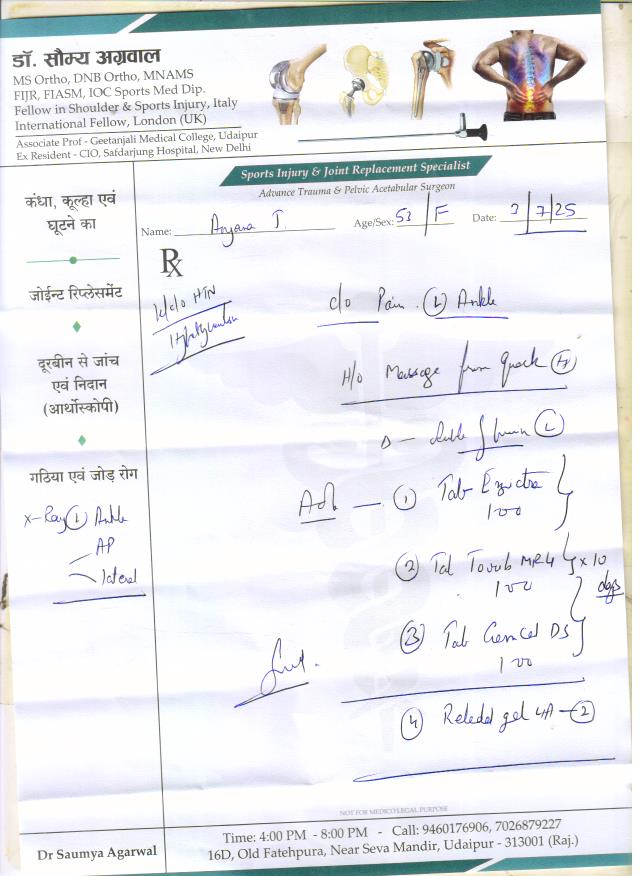 डॉ. सौम्य अग्रवाल
MS Ortho, DNB Ortho, MNAMS
FIJR, FIASM, IOC Sports Med Dip.
Fellow in Shoulder & Sports Injury, Italy
International Fellow, London (UK)
Associate Prof - Geetanjali Medical College, Udaipur
Ex Resident - CIO, Safdarjung Hospital, New Delhi
Sports Injury & Joint Replacement Specialist
Advance Trauma & Pelvic Acetabular Surgeon
Name: T. Age/Sex: 53 / F Date: 3/7/25
Rx
कंधा, कूल्हा एवं
घूटने का
जोईन्ट रिप्लेसमेंट
दूरबीन से जांच
एवं निदान
(आर्थोस्कोपी)
गठिया एवं जोड़ रोग
X-Ray (L) Ankle
AP
lateral
K/C/O HTN
c/o Pain (L) Ankle
H/O Massage from quack
Δ - Ankle (L)
Adv - 1 Tab
100
2 Tab MR4 x 10 days
100
3 Tab DS
100
4 gel LA - 2
NOT FOR MEDICO LEGAL PURPOSE
Dr Saumya Agarwal
Time: 4:00 PM - 8:00 PM - Call: 9460176906, 7026879227
16D, Old Fatehpura, Near Seva Mandir, Udaipur - 313001 (Raj.)